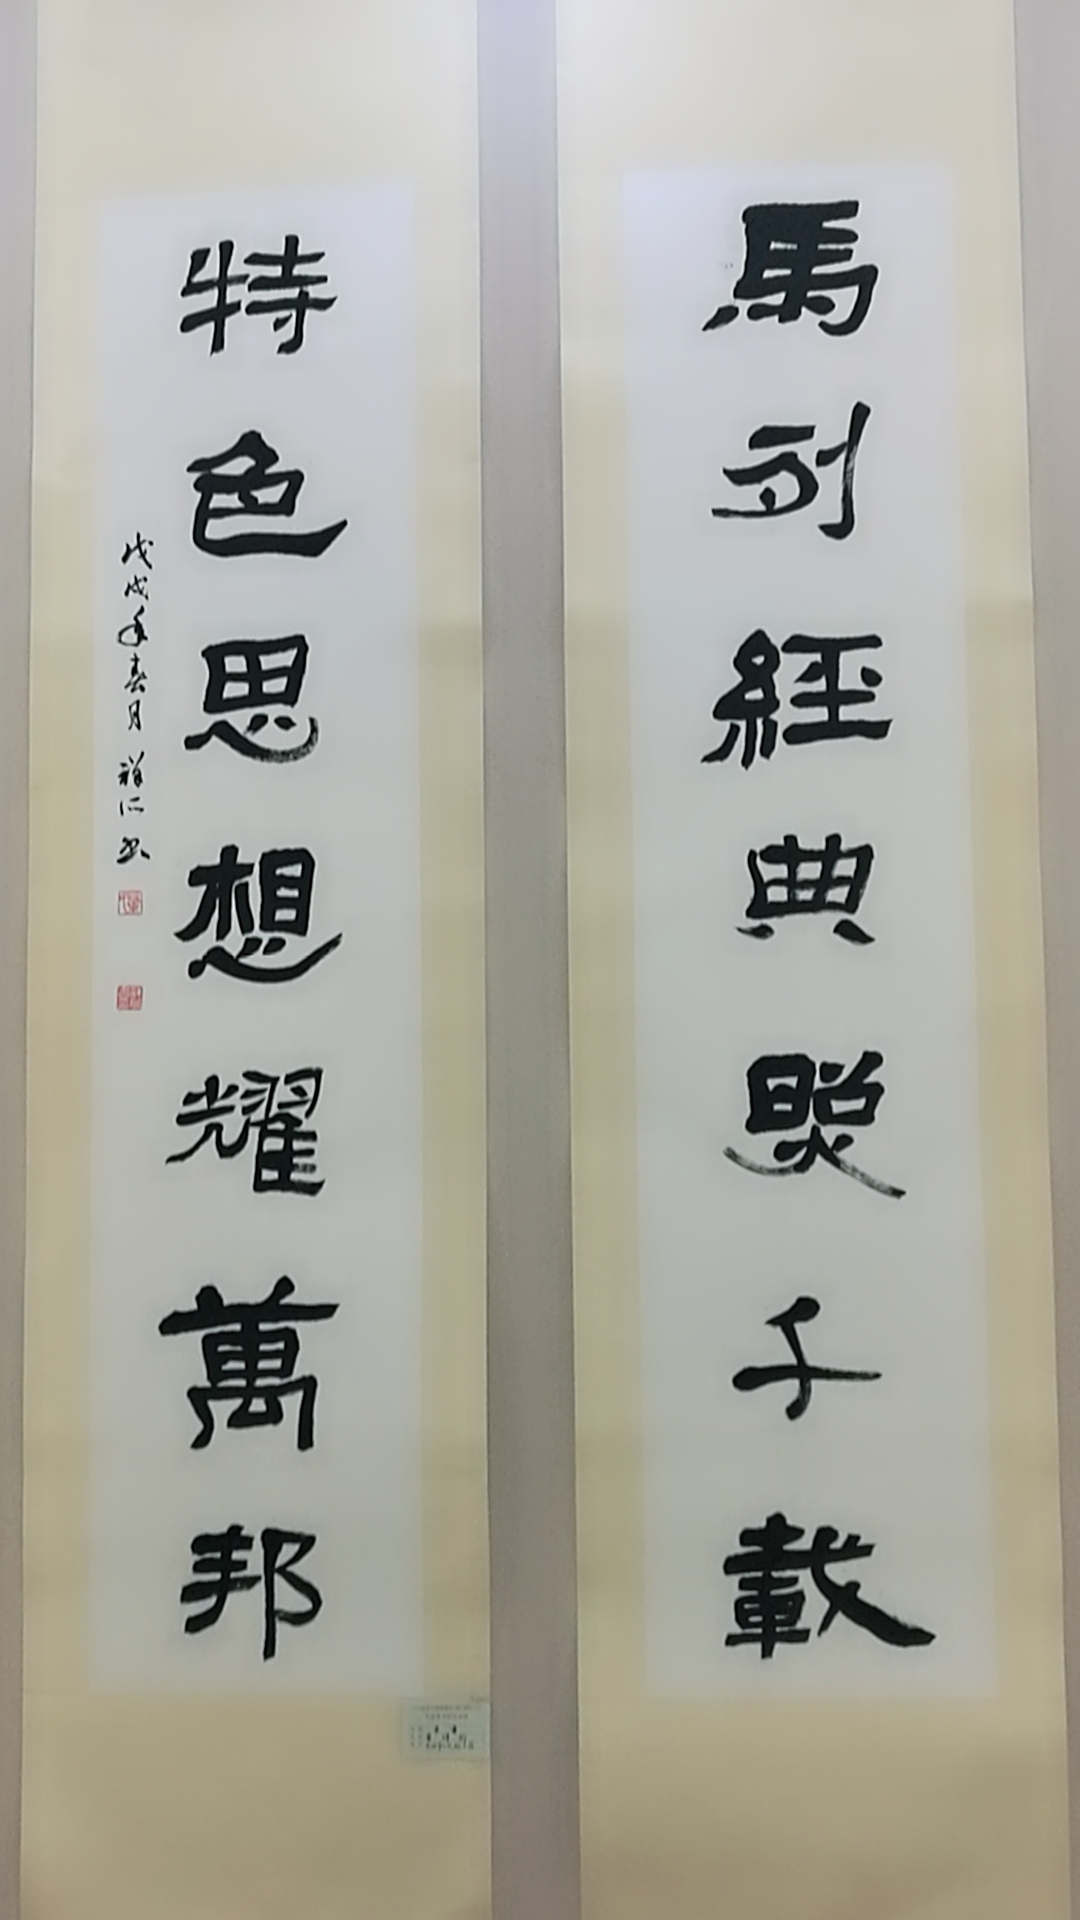 馬列經典照千載
特色思想耀萬邦
戊戌年春月祥仁书